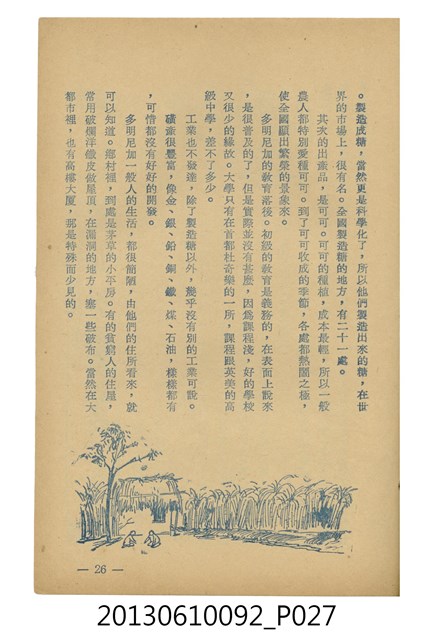 。製造成糖，當然更是科學化了，所以他們製造出來的糖，在世
界的市場上，很有名。全國製造糖的地方，有二十一處。
其次的出產品，是可可。可可的種植，成本最輕，所以一般
農人都特別愛種可可。到了可可收成的季節，各處都熱鬧之極，
使全國顯出繁榮的景象來。
多明尼加的教育落後。初級的教育是義務的，在表面上說來
，是很普及的了，但是實際並沒有甚麼，因為課程淺，好的學校
又很少的緣故。大學只有在首都杜奇樂的一所，課程跟英美的高
級中學，差不了多少。
工業也不發達，除了製造糖以外，幾乎沒有別的工業可說。
礦產很豐富，像金、銀、鉛、銅、鐵、煤、石油，樣樣都有
，可惜都沒有好好的開發。
多明尼加一般人的生活，都很簡陋，由他們的住所看來，就
可以知道。鄉村裡，到處是茅草的小平房。有的貧窮人的住屋，
常用破爛洋鐵皮做屋頂，在漏洞的地方，塞一些破布。當然在大
都市裡，也有高樓大厦，那是特殊而少見的。
— 26 —
20130610092_P027